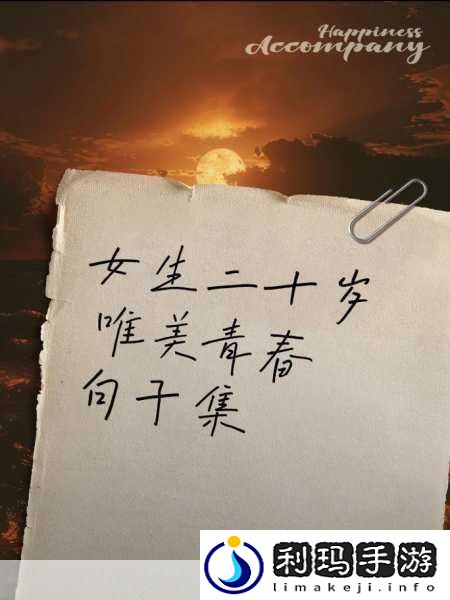 Happiness
Accompany
女生二十岁
唯美青春
句子集
利玛手游
limakeji.info